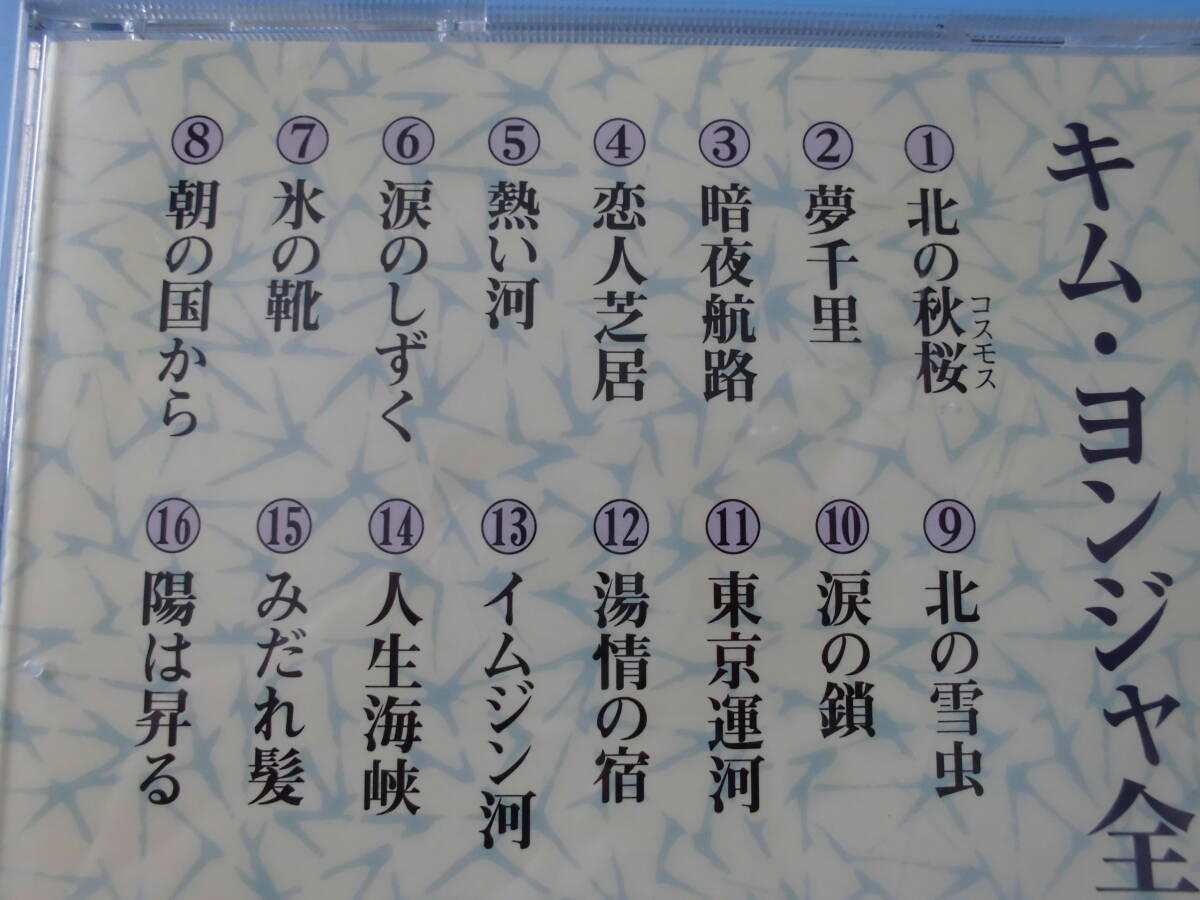 キム・ヨンジャ全
①北の秋桜
コスモス
②夢千里
③暗夜航路
④恋人芝居
⑤熱い河
⑥涙のしずく
⑦氷の靴
⑧朝の国から
⑨北の雪虫
⑩涙の鎖
⑪東京運河
⑫湯情の宿
⑬イムジン河
⑭人生海峡
⑮みだれ髪
⑯陽は昇る